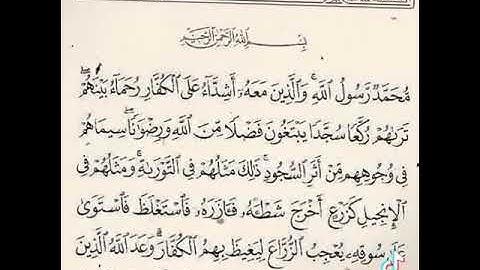 بِسْمِ اللَّهِ الرَّحْمَٰنِ الرَّحِيمِ
مُّحَمَّدٌ رَّسُولُ اللَّهِ ۚ وَالَّذِينَ مَعَهُۥٓ أَشِدَّآءُ عَلَى الْكُفَّارِ رُحَمَآءُ بَيْنَهُمْ ۖ
تَرَىٰهُمْ رُكَّعًا سُجَّدًا يَبْتَغُونَ فَضْلًا مِّنَ اللَّهِ وَرِضْوَٰنًا ۖ سِيمَاهُمْ
فِى وُجُوهِهِم مِّنْ أَثَرِ السُّجُودِ ۚ ذَٰلِكَ مَثَلُهُمْ فِى التَّوْرَىٰةِ ۚ وَمَثَلُهُمْ فِى
الْإِنجِيلِ كَزَرْعٍ أَخْرَجَ شَطْـَٔهُۥ فَـَٔازَرَهُۥ فَاسْتَغْلَظَ فَاسْتَوَىٰ
عَلَىٰ سُوقِهِۦ يُعْجِبُ الزُّرَّاعَ لِيَغِيظَ بِهِمُ الْكُفَّارَ ۗ وَعَدَ اللَّهُ الَّذِينَ